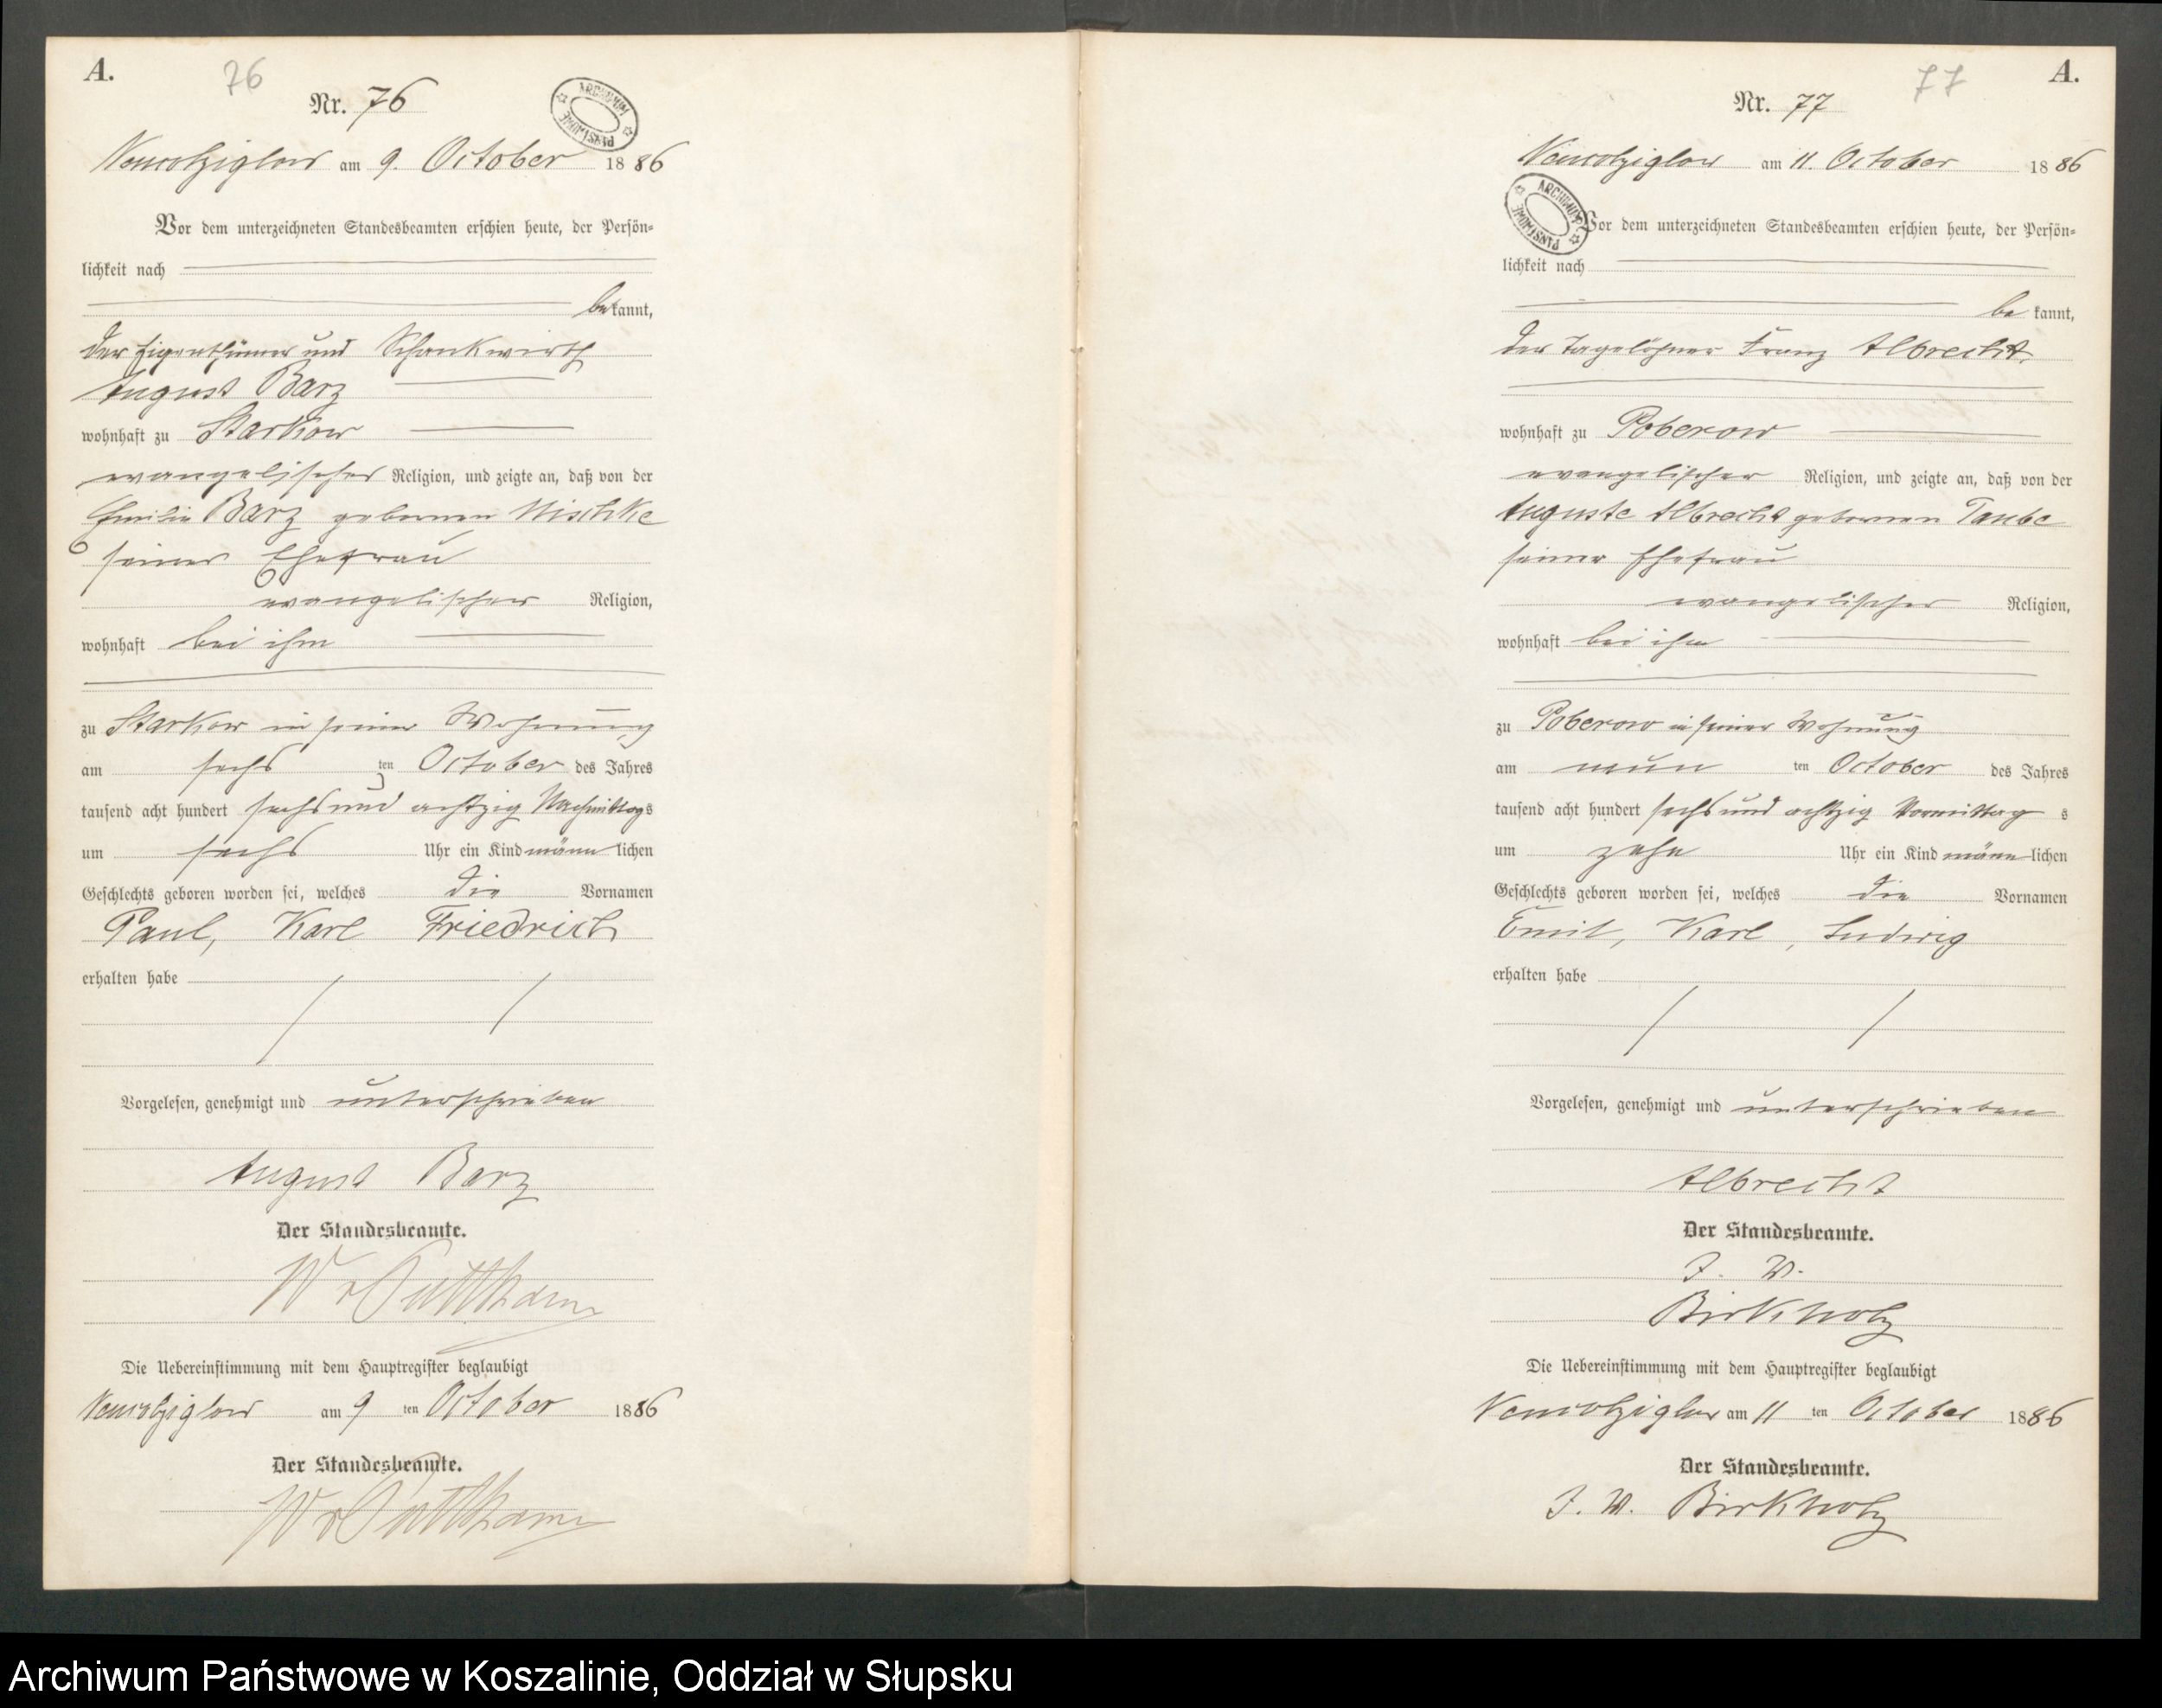 A.
76
Nr. 76
ARCHIWUM PAŃSTWOWE
Neucolziglow am 9. October 1886
Vor dem unterzeichneten Standesbeamten erschien heute, der Persön-
lichkeit nach
bekannt,
der Eigenthümer und Schankwirth
August Barz
wohnhaft zu Starkow
evangelischer Religion, und zeigte an, daß von der
Emilie Barz geborenen Mischke
seiner Ehefrau
evangelischer Religion,
wohnhaft bei ihm
zu Starkow in seiner Wohnung
am sechsten October des Jahres
tausend acht hundert sechs und achtzig Nachmittags
um sechs Uhr ein Kind männlichen
Geschlechts geboren worden sei, welches die Vornamen
Paul, Karl Friedrich
erhalten habe
Vorgelesen, genehmigt und unterschrieben
August Barz
Der Standesbeamte.
W v Puttkamer
Die Uebereinstimmung mit dem Hauptregister beglaubigt
Neucolziglow am 9 ten October 1886
Der Standesbeamte.
W v Puttkamer
77
A.
Nr. 77
Neucolziglow am 11. October 1886
ARCHIWUM PAŃSTWOWE
Vor dem unterzeichneten Standesbeamten erschien heute, der Persön-
lichkeit nach
bekannt,
der Tagelöhner Franz Albrecht
wohnhaft zu Poberow
evangelischer Religion, und zeigte an, daß von der
Auguste Albrecht geborenen Taube
seiner Ehefrau
evangelischer Religion,
wohnhaft bei ihm
zu Poberow in seiner Wohnung
am neun ten October des Jahres
tausend acht hundert sechs und achtzig Vormittags
um zehn Uhr ein Kind männlichen
Geschlechts geboren worden sei, welches die Vornamen
Emil, Karl, Ludwig
erhalten habe
Vorgelesen, genehmigt und unterschrieben
Albrecht
Der Standesbeamte.
J. V.
Birkholz
Die Uebereinstimmung mit dem Hauptregister beglaubigt
Neucolziglow am 11 ten October 1886
Der Standesbeamte.
J. V. Birkholz
Archiwum Państwowe w Koszalinie, Oddział w Słupsku